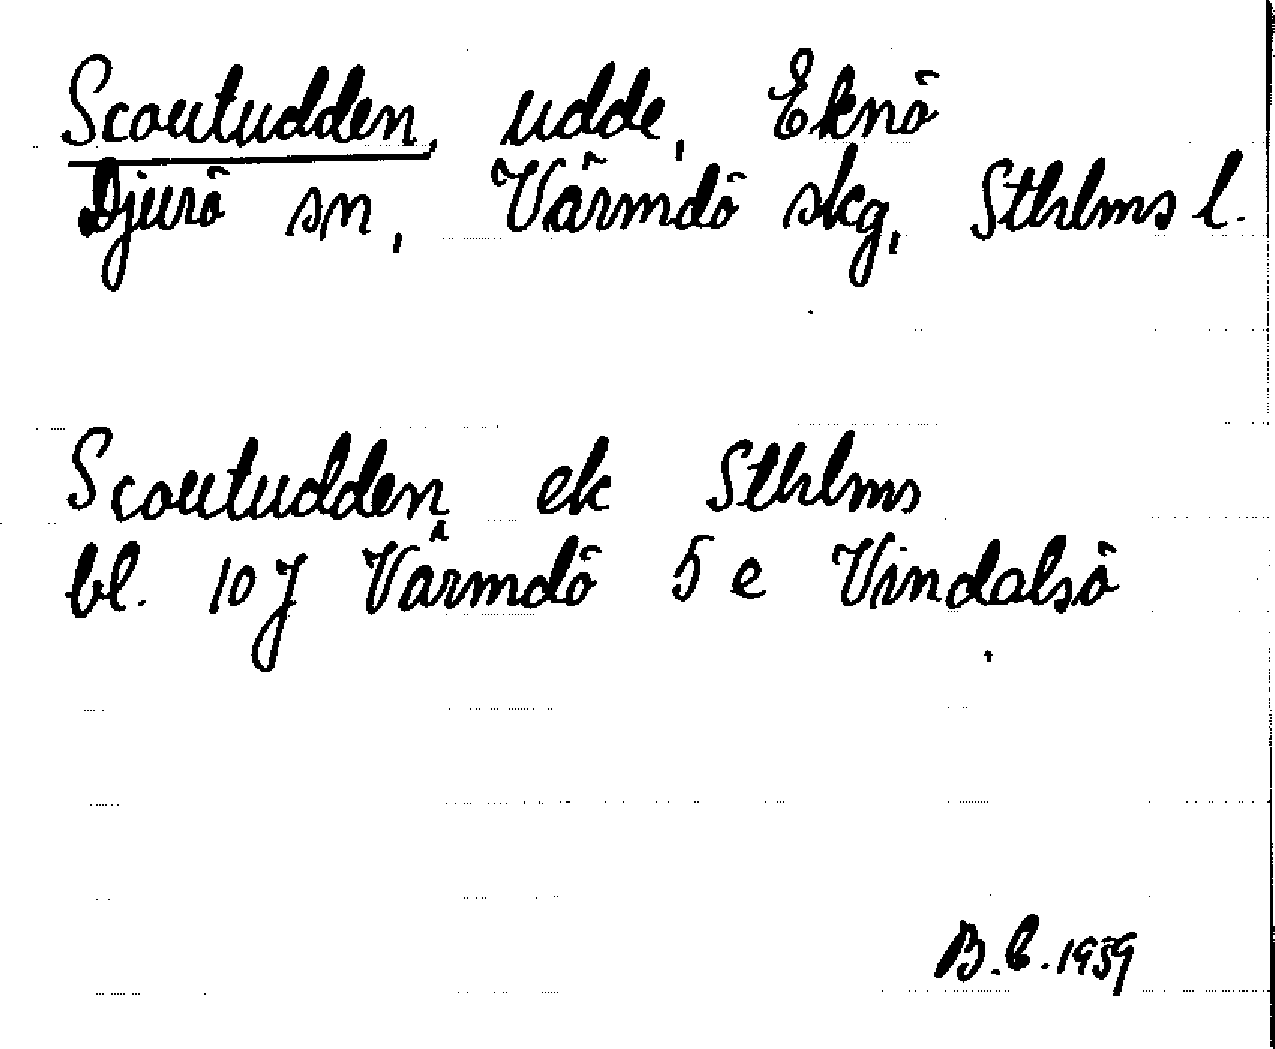 Scoutudden, udde, Eknö
Djurö sn, Värmdö skg, Sthlms l.
Scoutudden ek Sthlms
bl. 10 J Värmdö 5 e Vindalsö
B.C. 1959